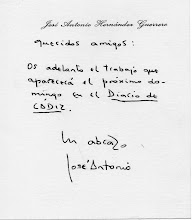 José Antonio Hernández Guerrero
Queridos amigos:
Os adelanto el trabajo que
aparecerá el próximo do-
mingo en el Diario de
CÁDIZ.
Un abrazo
José Antonio